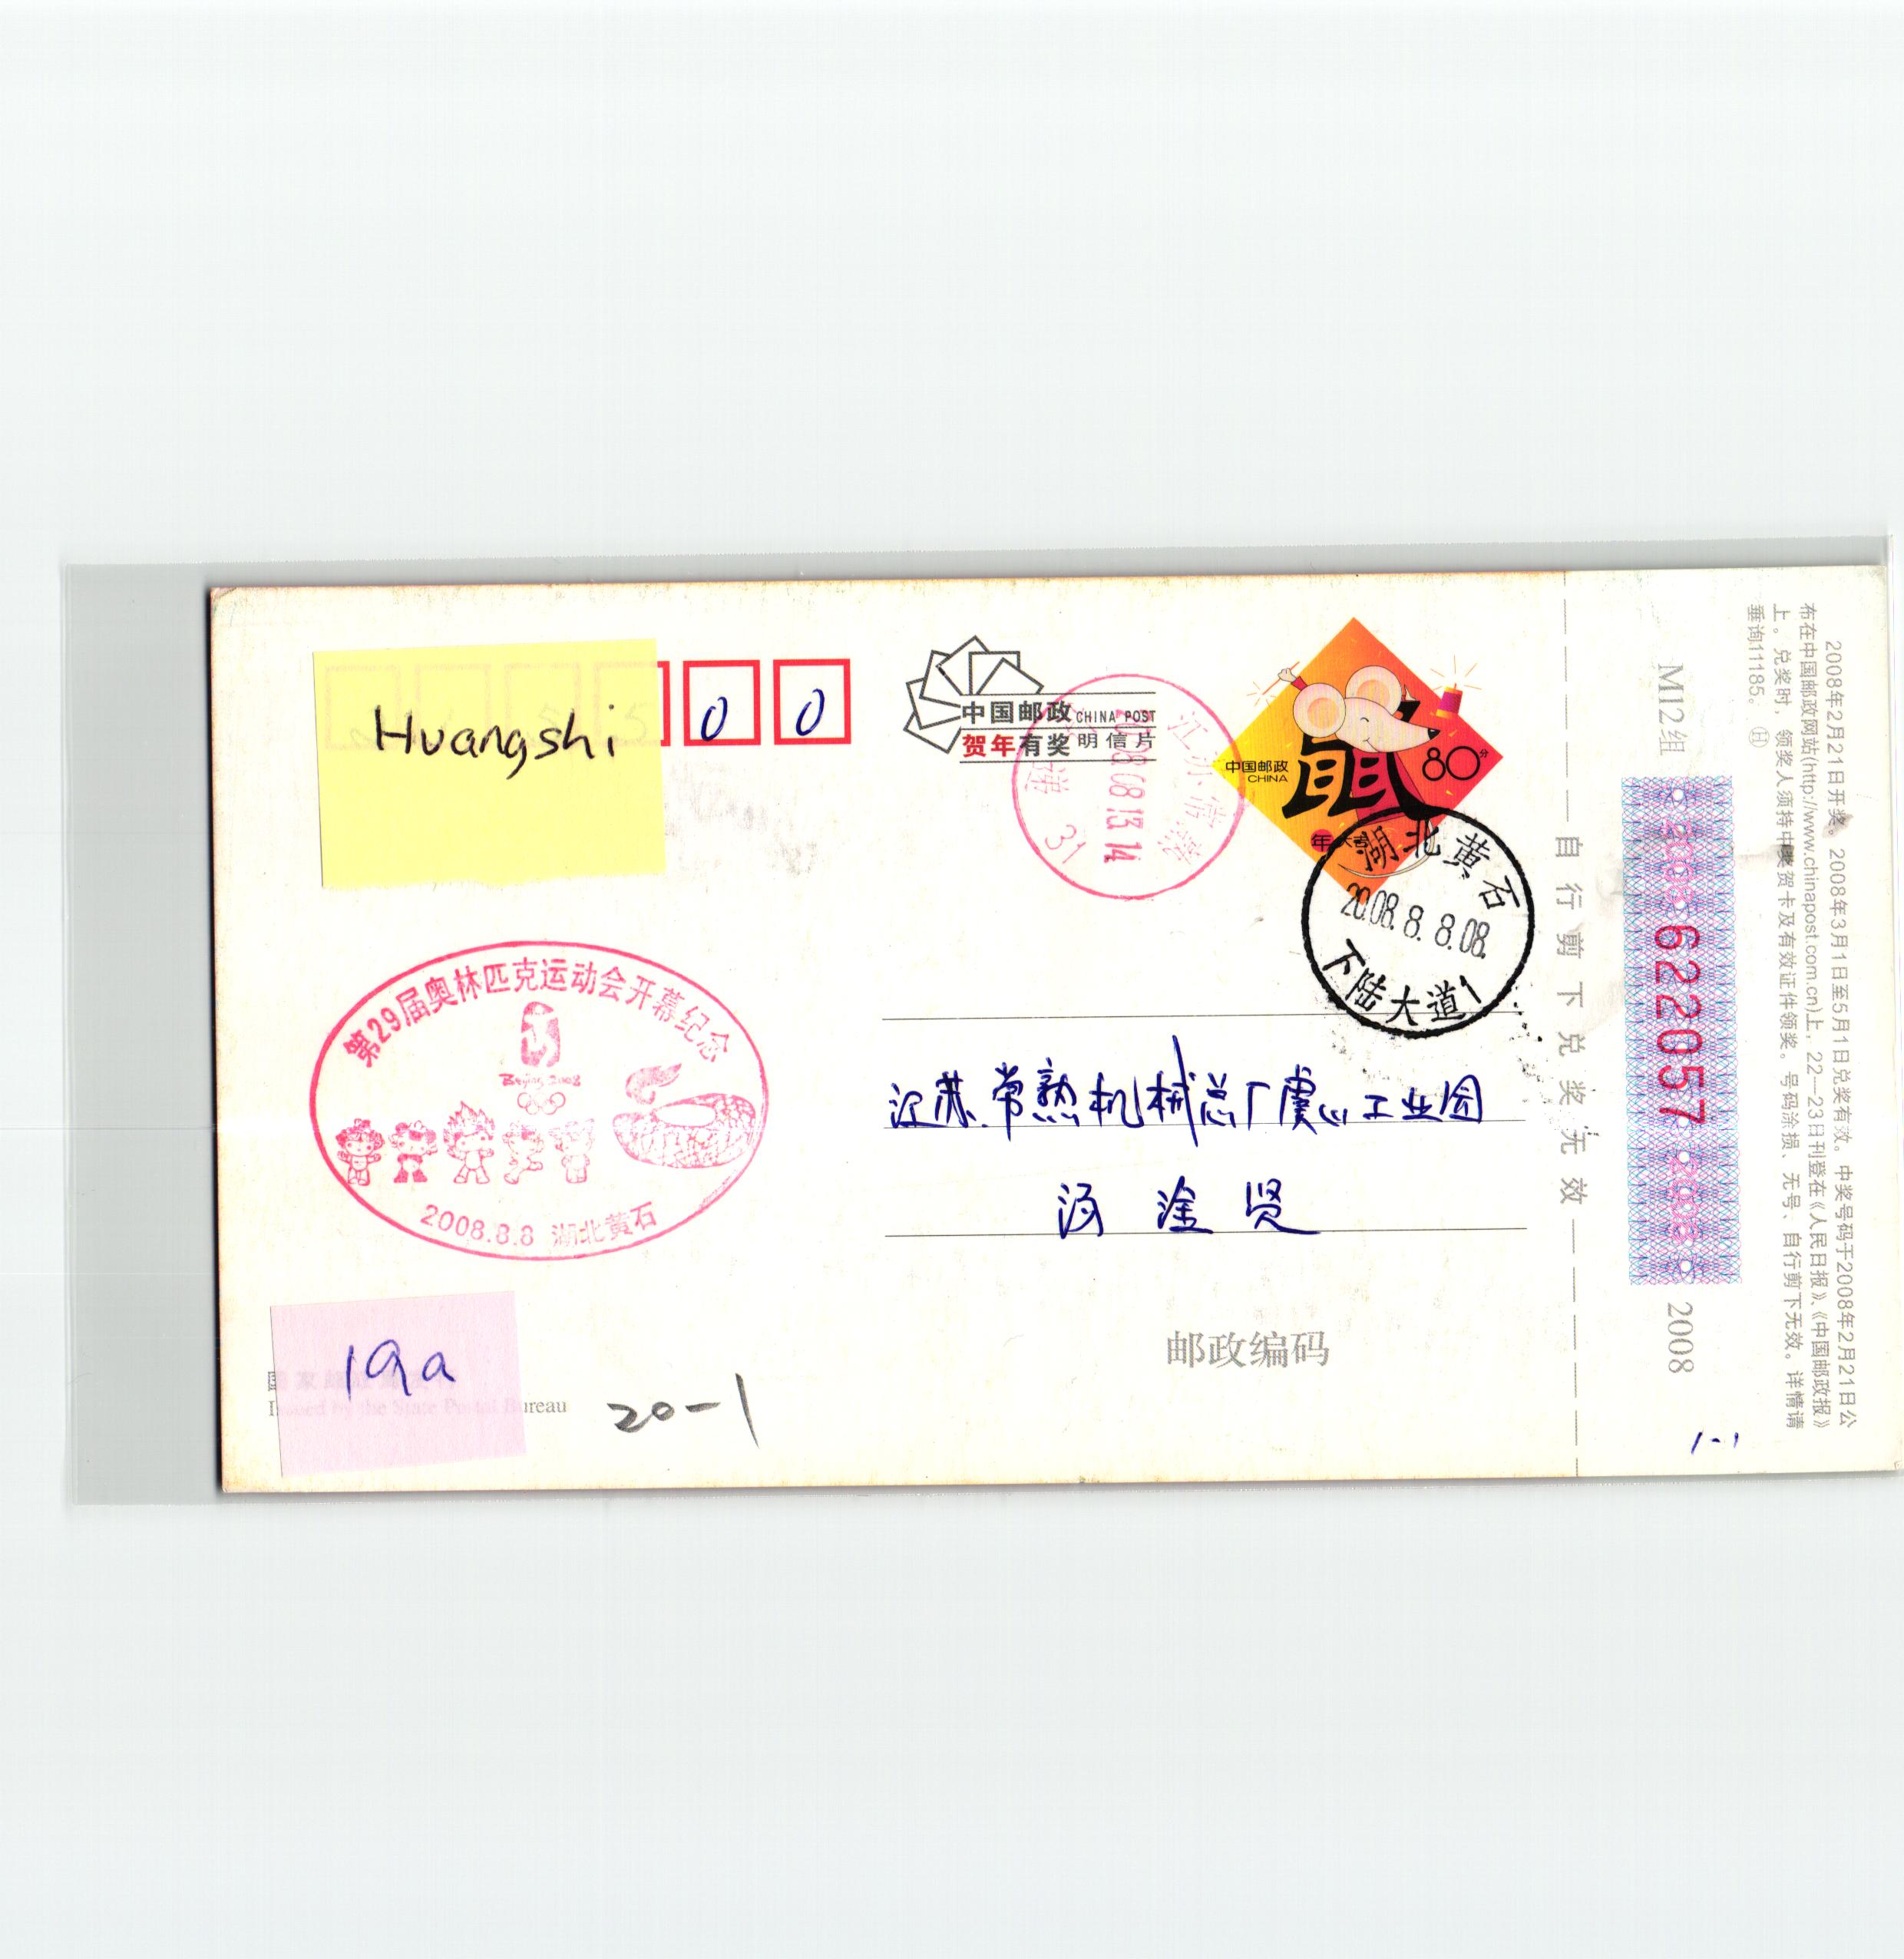 Huangshi
0 0
中国邮政 CHINA POST
贺年有奖 明信片
江苏常熟
2008.08.13 14
31
中国邮政
CHINA
鼠
80分
年
湖北黄石
2008.8.8.08.
下陆大道1
第29届奥林匹克运动会开幕纪念
Beijing 2008
2008.8.8 湖北黄石
江苏常熟机械总厂虞山工业园
邮政编码
19a
Issued by the State Postal Bureau
20-1
自行剪下兑奖无效
M12组
2008 622057 2008
2008
2008年2月21日开奖。2008年3月1日至5月1日兑奖有效。中奖号码于2008年2月21日公
布在中国邮政网站(http://www.chinapost.com.cn)上，22—23日刊登在《人民日报》、《中国邮政报》
上。兑奖时，领奖人须持中奖贺卡及有效证件领奖。号码涂损、无号、自行剪下无效。详情请
垂询11185。 H
1-1